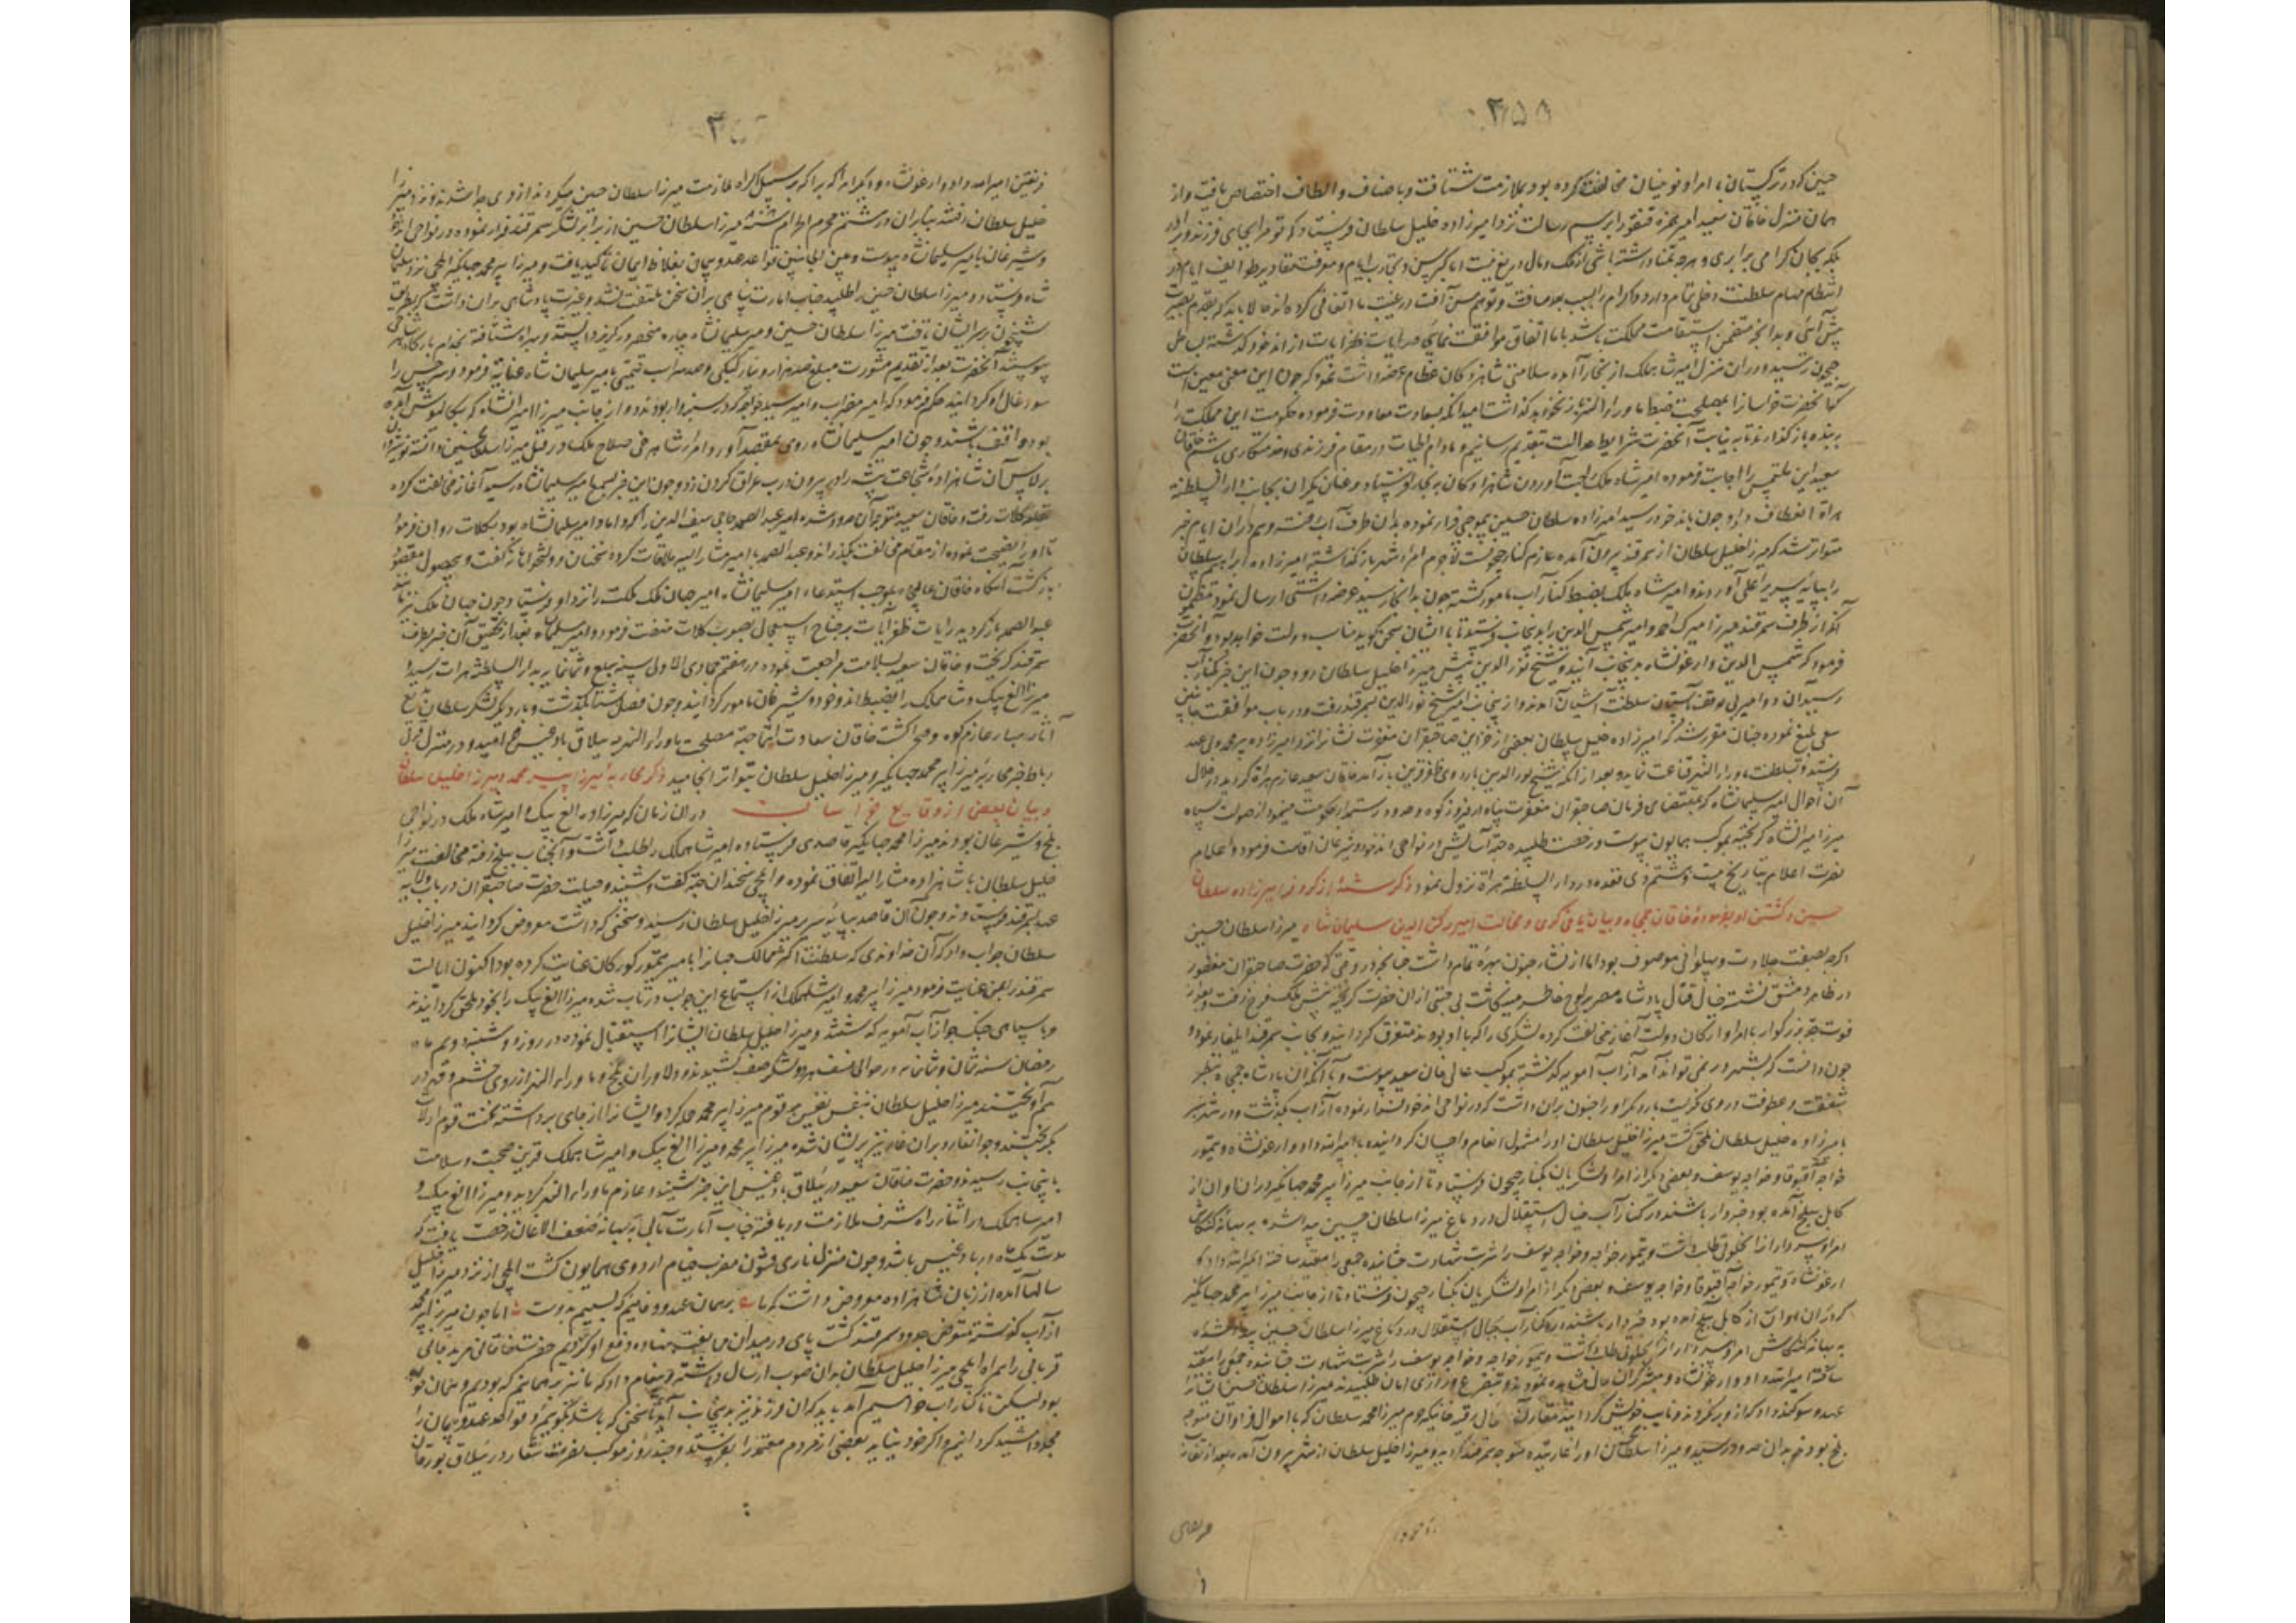 ۳۵۸
حسین که در ترکستان با امرا و نوئینان مخالفت کرده بود بملازمت شتافت و باصناف والطاف اختصاص یافت و از
همان منزل خاقان سعید امیر حمزه قتقو را برسم رسالت نزد امیرزاده خلیل سلطان فرستاد که تو مرا بجای فرزند و برادر
بلکه بجان گرامی برابری و هرچه تمنا داشته باشی از ملک و مال دریغ نیست اما کبر سن و تجارب ایام و معرفت مقادیر طوایف انام در
انتظام مهام سلطنت دخلی تمام دارد
پیش آئی و بدانچه متضمن استقامت مملکت باشد با ما اتفاق موافقت نمائی
جیحون رسید و در آن منزل امیر شاهملک از بخارا آمده سلامتی شاهزادگان عظام عرضه داشت نمود که چون این معنی معین است
که آنحضرت خراسان را بمصلحت ضبط ماوراء النهر نخواهد گذاشت امید آنکه بسعادت معاودت فرموده حکومت این مملکت را
به بنده باز گذارند تا به نیابت آنحضرت شرایط عدالت بتقدیم رسانیم و مادام الحیات در مقام فرزندی و خدمتکاری باشم خاقان
سعید این ملتمس را اجابت فرموده امیر شاه ملک را بجهت آوردن شاهزادگان به بخارا فرستاد و عنان یکران بجانب دار السلطنة
هراة انعطاف داد و چون باندخود رسید امیرزاده سلطان حسین بی موجبی فرار نموده بدان طرف آب رفت و هم در آن ایام خبر
متواتر شد که میرزا خلیل سلطان از سمرقند بیرون آمده عازم کنار جیحونست
را بپایه سریر اعلی آوردند و امیر شاه ملک بضبط کنار آب مامور گشته چون بدانجا رسید عرضه داشتی ارسال نمود
آنکه از طرف سمرقند میرزا میرک احمد و امیر شمس الدین را بدینجانب فرستید تا با ایشان سخن گوید مناسب دولت خواهد بود و آنحضرت
فرمود که شمس الدین و ارغونشاه بدینجانب آیند و شیخ نور الدین پیش میرزا خلیل سلطان رود و چون این خبر بکنار آب
رسید آن دو امیر بی توقف بآستان سلطنت آشیان آمدند و از اینجانب امیر شیخ نور الدین بسمرقند رفت و در باب موافقت جانبین
سعی بلیغ نموده چنان مقرر شد که امیرزاده خلیل سلطان بعضی از خزاین صاحبقران مغفرت نشان را نزد امیرزاده پیر محمد ولی عهد
فرستد و بسلطنت ماوراء النهر قناعت نماید و بعد از آنکه شیخ نور الدین باردوی ظفر قرین باز آمد خاقان سعید عازم هراة گردید و در خلال
آن احوال امیر سلیمانشاه که بمقتضای فرمان صاحبقران مغفرت پناه در فیروزکوه و حدود رستمدار حکومت مینمود از صولت سپاه
میرزا میرانشاه گریخته بموکب همایون پیوست و رخصت طلبیده جهة آسایش در نواحی اندخود و شبرغان اقامت فرمود و اعلام
نصرت اعلام بتاریخ بیست و هشتم ذی قعده در دار السلطنه هراة نزول نمود ذکر شمهٔ از کر و فر امیرزاده سلطان
حسین و کشتن او بفرموده خاقان جمجاه و بیان یاغی گری و مخالفت امیر رکن الدین سلیمان شاه میرزا سلطان حسین
اگرچه بصفت جلادت و پهلوانی موصوف بود اما از نشاء جنون بهرهٔ تمام داشت چنانچه در وقتی که حضرت صاحبقران مغفور
در ظاهر دمشق نشسته خیال قتال پادشاه مصر بر لوح خاطر مینگاشت بی جهتی از آن حضرت گریخته پیش ملک فرخ رفت و بعد از
فوت جد بزرگوار با امرا و ارکان دولت آغاز مخالفت کرده لشکری را که با او بودند متفرق گردانید و بجانب سمرقند ایلغار نمود و
چون دانست که بشهر در نمی تواند آمد از آب آمویه گذشته بموکب عالی خان سعید پیوست و با آنکه آن پادشاه جمجاه بنظر
شفقت و عطوفت در وی نگریست بار دیگر او را جنون بر آن داشت که در نواحی اندخود فرار نموده از آب بگذشت و در شهر
بامیرزاده خلیل سلطان ملحق گشت میرزا خلیل سلطان او را مشمول انعام و احسان گردانیده با امیر الله داد و ارغونشاه و تیمور
خواجه آقبوقا و خواجه یوسف و بعضی دیگر از امرا و لشکریان بکنار جیحون فرستاد تا از جانب میرزا پیر محمد جهانگیر در آن اوان از
کابل ببلخ آمده بود خبردار باشند و در کنار آب خیال استقلال در دماغ میرزا سلطان حسین پیدا شده به بهانه کنکاش
امرا و سرداران را بخلوتی طلب داشت و تیمور خواجه و خواجه یوسف را شربت شهادت چشانیده جمعی را مقید ساخته امیر الله داد و
ارغونشاه و تیمور خواجه آقبوقا و خواجه یوسف و بعضی دیگر از امرا و لشکریان بکنار جیحون فرستاد تا از جانب میرزا پیر محمد جهانگیر
که در آن اوان از کابل ببلخ آمده بود خبردار باشند و در کنار آب خیال استقلال در دماغ میرزا سلطان حسین پیدا شده
به بهانه کنکاش امرا و سرداران را بخلوتی طلب داشت و تیمور خواجه و خواجه یوسف را شربت شهادت چشانیده جمعی را مقید
ساخته امیر الله داد و ارغونشاه و دیگران حال مشاهده نمودند و بتضرع و زاری امان طلبیدند میرزا سلطان حسین ایشان را
عهد و سوگند داد که از او برنگردند و نایب خویش گردانید
بلخ بود هم بدان حدود رسید و میرزا سلطان حسین او را غارتیده متوجه سمرقند گردید و میرزا خلیل سلطان از شهر بیرون آمده بعد از تقارب
فریقین امیر الله داد و ارغونشاه و دیگر امرا که براه ملازمت میرزا سلطان حسین میکردند از وی جدا شدند و نزد میرزا
خلیل سلطان رفتند بنابر آن در هشتم محرم الحرام سنه میرزا سلطان حسین از برابر لشکر سمرقند فرار نموده در نواحی اندخود
و شبرغان بامیر سلیمانشاه پیوست و بین الجانبین قواعد عهد و پیمان بغلاظ ایمان تأکید یافت و میرزا پیر محمد جهانگیر ایلچی نزد سلیمان
شاه فرستاد و میرزا سلطان حسین را طلبید جناب امارت پناهی بدان سخن ملتفت نشد و غیرت پادشاهی بر آن داشت که بطریق
شبخون بر سر ایشان تاخت میرزا سلطان حسین و میر سلیمانشاه چاره منحصر در گریز دانسته و بهراة شتافته بخدام بارگاه شاهی
پیوستند آنحضرت بعد از تقدیم مشورت مبلغ صد هزار دینار کپکی و صد سر اسب قیمتی بامیر سلیمان شاه عنایت فرمود و سرخس را
سیورغال او گردانید حکم فرمود که امیر مضراب و امیر سید خواجه که در سبزوار بودند و از جانب میرزا امیرانشاه
بود واقف باشند و چون امیر سلیمانشاه روی بمقصد آورد امرا شاهرخی صلاح ملک در قتل میرزا سلطان حسین دانسته
برلاس آن شاهزادهٔ شجاعت پیشه را در بیرون درب عراق گردن زد و چون این خبر بسمع امیر سلیمانشاه رسید آغاز مخالفت کرده
بقلعه کلات رفت و خاقان سعید متوجه آن حدود شده امیر عبد الصمد حاجی سیف الدین را که داماد امیر سلیمانشاه بود بکلات روان فرمود
تا او را نصیحت نموده از مقام مخالفت بگذراند و عبد الصمد با امیر مشار الیه ملاقات کرده سخنان دولتخواهانه گفت و بحصول مقصود
بازگشت آنگاه خاقان عالیجاه بموجب استدعاء امیر سلیمانشاه امیر جهان ملک ملکت را نزد او فرستاد و چون جهان ملک نیز مانند
عبد الصمد باز گردید رایات ظفر آیات بر جناح استعجال بصوب کلات نهضت فرمود و امیر سلیمانشاه بعد از تحقیق آن خبر بطرف
سمرقند گریخت و خاقان سعید بسلامت مراجعت نموده در هفتم جمادی الاولی سنه سبع و ثمانمایه بدار السلطنه هرات رسید و
میرزا الغ بیک و شاهملک را بضبط اندخود و شبرغان مامور گردانید و چون فصل شتا بگذشت و بار دیگر لشکر سلطان ربیع
آثار بهار عازم کوه و صحرا گشت خاقان سعادت انتما جهة مصلحت ماوراء النهر به ییلاق بادغیس خرامید و در منزل قزل
رباط خبر محاربه میرزا پیر محمد جهانگیر و میرزا خلیل سلطان بتواتر انجامید ذکر محاربه میرزا پیر محمد و میرزا خلیل سلطان
و بیان بعضی از وقایع خراسان در آن زمان که میرزاده الغ بیک و امیر شاه ملک در نواحی
بلخ و شبرغان بودند میرزا محمد جهانگیر قاصدی فرستاده امیر شاهملک را طلب داشت و آنجناب ببلخ رفته مخالفت میرزا
خلیل سلطان با شاهزاده مشار الیه اتفاق نموده و ایلچی سخندان جهة گفت و شنید وصیت حضرت صاحبقران در باب ولایت
عهد بسمرقند فرستادند و چون آن قاصد بپایه سریر میرزا خلیل سلطان رسید و سخنی که داشت معروض گردانید میرزا خلیل
سلطان جواب داد که آن خداوندی که سلطنت اکثر ممالک جهان را بامیر تیمور گورکان عنایت کرده بود اکنون ایالت
سمرقند را بمن عنایت فرمود میرزا پیر محمد و امیر شاهملک از استماع این جواب در تاب شده میرزا الغ بیک را بخود ملحق گردانیدند
و با سپاهی جنگجو از آب آمویه گذشتند و میرزا خلیل سلطان ایشان را استقبال نموده در روز دوشنبه دویم ماه
رمضان سنه ثمان و ثمانمایه در حوالی نسف هر دو لشکر صف کشیدند و دلاوران بلخ و ماوراء النهر از روی خشم و قهر در
هم آویختند میرزا خلیل سلطان بنفس نفیس بر قوم میرزا پیر محمد حمله کرد و ایشان را از جای برداشته نخست قوم ارلات
بگریختند و جوانغار و برانغار نیز پریشان شده میرزا پیر محمد و میرزا الغ بیک و امیر شاهملک قرین صحت و سلامت
باینجانب رسیدند و حضرت خاقان سعید در ییلاق بادغیس این خبر شنیده عازم ماوراء النهر گردید و میرزا الغ بیک و
امیر شاهملک در اثناء راه شرف ملازمت دریافته جناب امارت مآلی به بهانه ضعف الاغان رخصت یافت که
مدت یکماه در بادغیس باشد و چون منزل مضرب خیام اردوی همایون گشت ایلچی از نزد میرزا خلیل
سالها آمده از زبان شاهزاده معروض داشت که ما بر همان عهد و وفائیم که بستیم بدوست اما چون میرزا پیر محمد
از آب گذشته متعرض حدود سمرقند گشت پای در میدان مدافعه نهاده دفع او کردیم حضرت خاقانی
قربانی را همراه ایلچی میرزا خلیل سلطان بدان صوب ارسال داشته پیغام داد که ما نیز بر همانیم که بودیم و همان خواهیم
بود لیکن تا کنار آب خواهیم آمد باید که آن فرزند نیز بدینجانب آید تا سخنی که باشد بگوئیم و قواعد عهد و پیمان را
مجدد و مشید گردانیم و اگر خود نیاید بعضی از مردم معتمد را بفرستد و چند روز موکب نصرت شعار در ییلاق